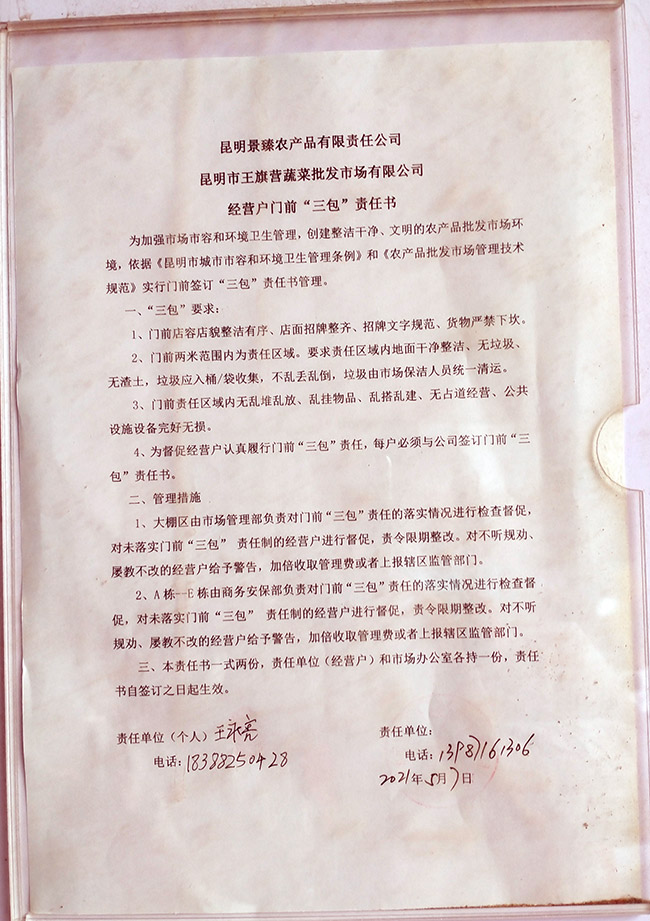 昆明景臻农产品有限责任公司
昆明市王旗营蔬菜批发市场有限公司
经营户门前“三包”责任书
为加强市场市容和环境卫生管理，创建整洁干净、文明的农产品批发市场环
境，依据《昆明市城市市容和环境卫生管理条例》和《农产品批发市场管理技术
规范》实行门前签订“三包”责任书管理。
一、“三包”要求：
1、门前店容店貌整洁有序、店面招牌整齐、招牌文字规范、货物严禁下坎。
2、门前两米范围内为责任区域。要求责任区域内地面干净整洁、无垃圾、
无渣土，垃圾应入桶/袋收集，不乱丢乱倒，垃圾由市场保洁人员统一清运。
3、门前责任区域内无乱堆乱放、乱挂物品、乱搭乱建、无占道经营、公共
设施设备完好无损。
4、为督促经营户认真履行门前“三包”责任，每户必须与公司签订门前“三
包”责任书。
二、管理措施
1、大棚区由市场管理部负责对门前“三包”责任的落实情况进行检查督促，
对未落实门前“三包” 责任制的经营户进行督促，责令限期整改。对不听规劝、
屡教不改的经营户给予警告，加倍收取管理费或者上报辖区监管部门。
2、A栋--E栋由商务安保部负责对门前“三包”责任的落实情况进行检查督
促，对未落实门前“三包” 责任制的经营户进行督促，责令限期整改。对不听
规劝、屡教不改的经营户给予警告，加倍收取管理费或者上报辖区监管部门。
三、本责任书一式两份，责任单位（经营户）和市场办公室各持一份，责任
书自签订之日起生效。
责任单位（个人）王永亮
责任单位：
电话：18388250428
电话：13987161306
2021年5月7日